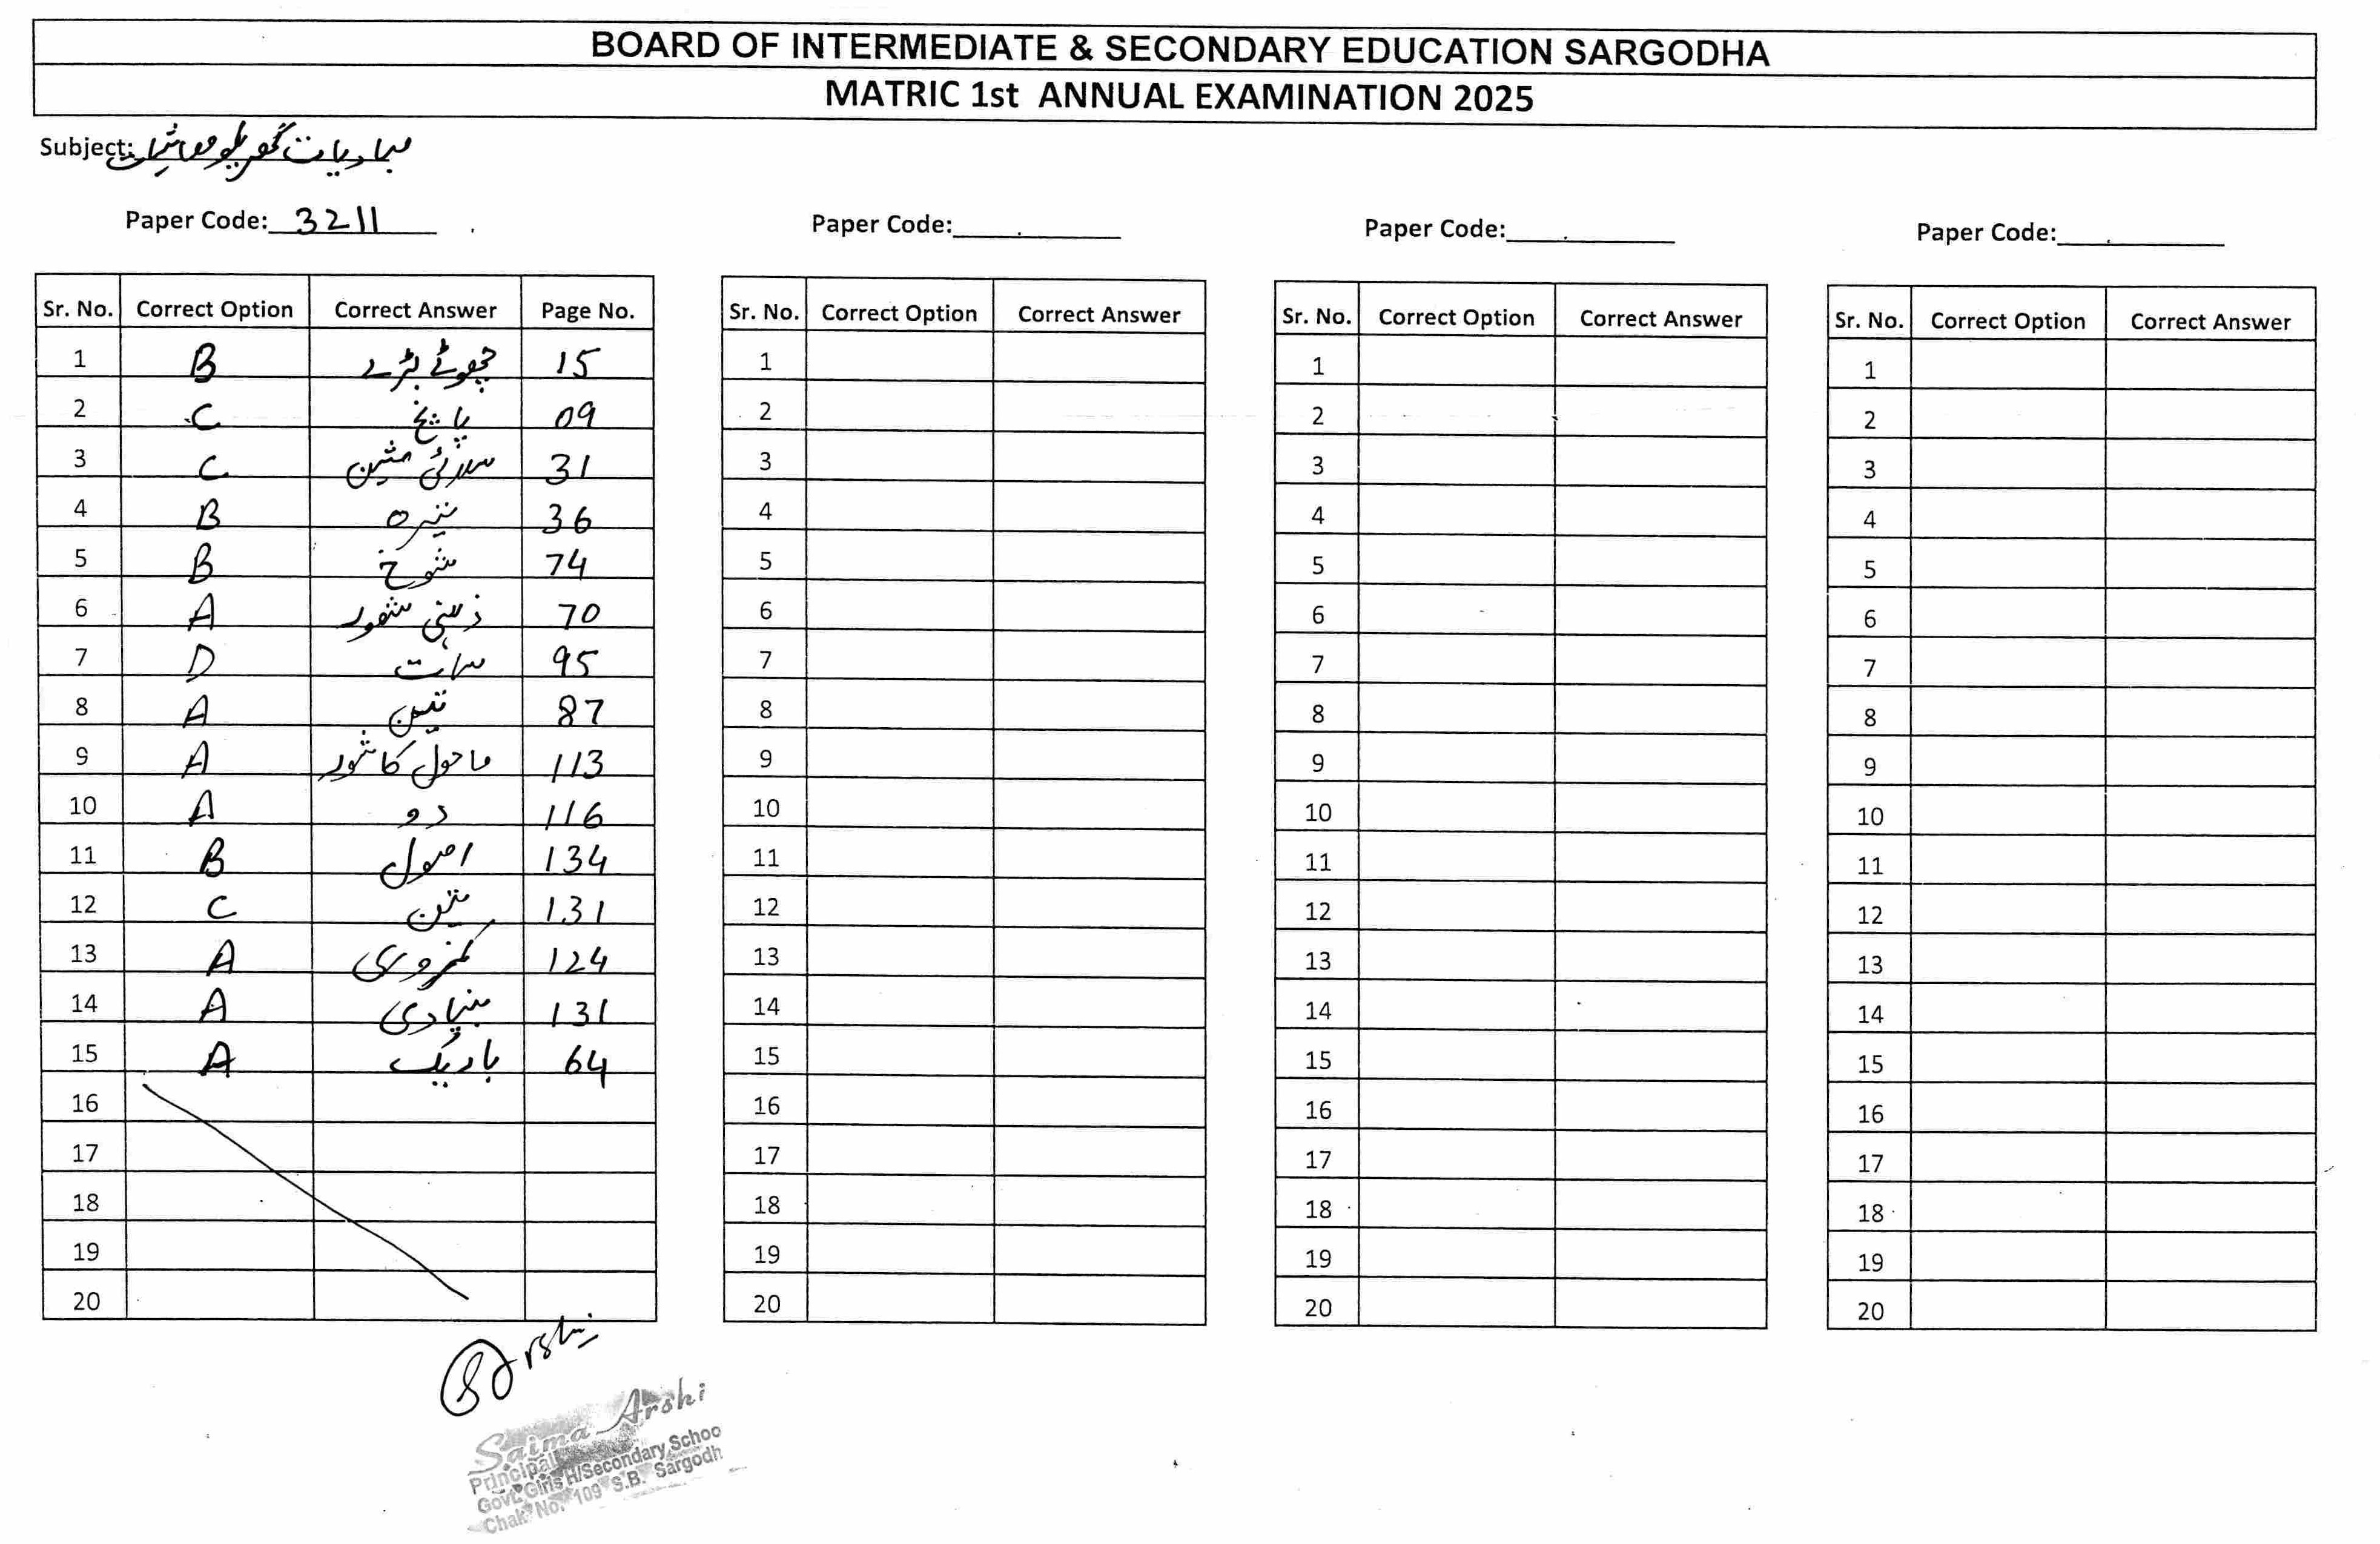 BOARD OF INTERMEDIATE & SECONDARY EDUCATION SARGODHA
MATRIC 1st ANNUAL EXAMINATION 2025
Subject: مبادیات گھریلو معاشیات
Paper Code: 3211
Paper Code:
Paper Code:
Paper Code:
Sr. No. Correct Option Correct Answer Page No.
1 B چھوٹے بڑے 15
2 C پانچ 09
3 C سلائی مشین 31
4 B تیرہ 36
5 B شوخ 74
6 A ذہنی شعور 70
7 D سات 95
8 A تیس 87
9 A ماحول کا شور 113
10 A دو 116
11 B اصول 134
12 C تین 131
13 A کمزوری 124
14 A بنیادی 131
15 A باریک 64
16
17
18
19
20
Sr. No. Correct Option Correct Answer
1
2
3
4
5
6
7
8
9
10
11
12
13
14
15
16
17
18
19
20
Sr. No. Correct Option Correct Answer
1
2
3
4
5
6
7
8
9
10
11
12
13
14
15
16
17
18
19
20
Sr. No. Correct Option Correct Answer
1
2
3
4
5
6
7
8
9
10
11
12
13
14
15
16
17
18
19
20
Saima Arshi
Principal
Govt. Girls H/Secondary Schoo
Chak No. 109 S.B. Sargodh